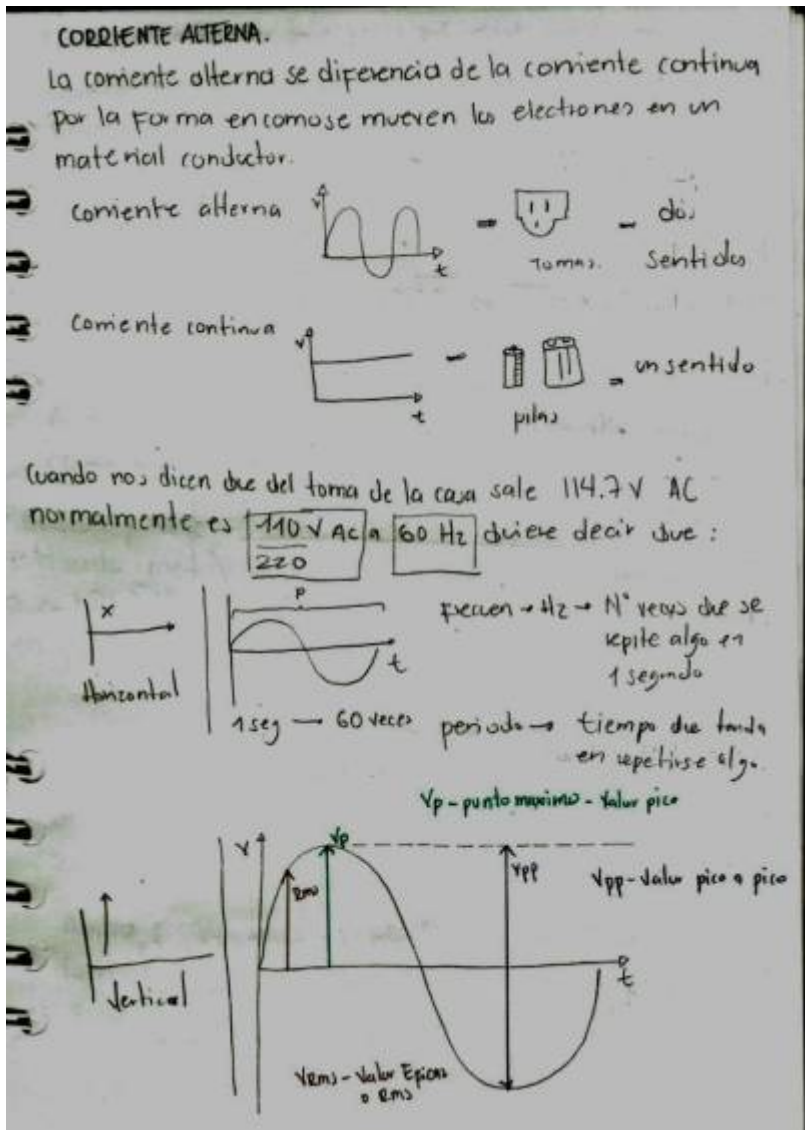 CORRIENTE ALTERNA.
La corriente alterna se diferencia de la corriente continua
por la forma en como se mueven los electrones en un
material conductor.
Corriente alterna V t - Tomas. - dos
sentidos
Corriente continua V t - pilas - un sentido
Cuando nos dicen que del toma de la casa sale 114.7 V AC
normalmente es 110 V AC a 60 Hz quiere decir que:
220
X
Horizontal
P
t
1 seg → 60 veces
frecuen → Hz → N° veces que se
repite algo en
1 segundo
periodo → tiempo que tarda
en repetirse algo.
Vp - punto maximo - Valor pico
V Rms Vp Vpp t
Vpp - Valor pico a pico
Vertical
VRms - Valor Eficas
o Rms